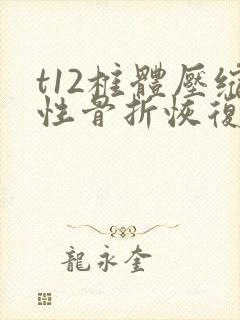 t12椎體壓縮
性骨折恢復
龍永奎